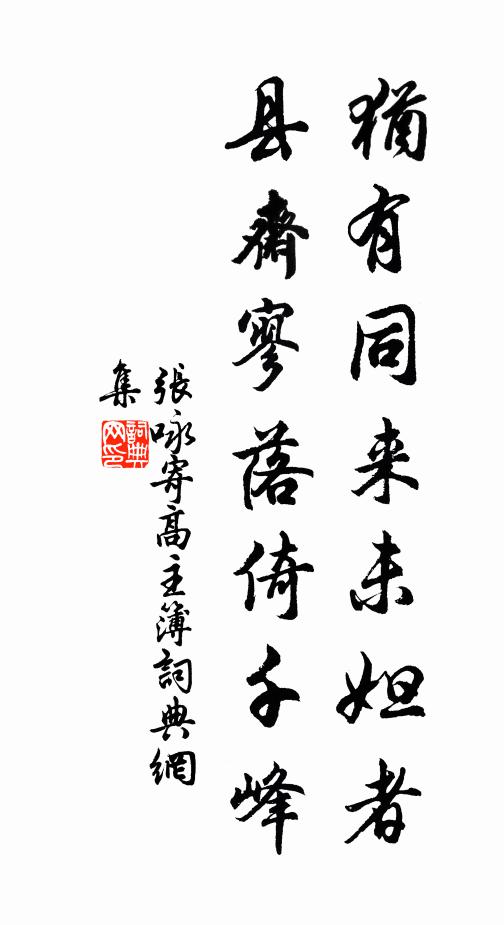 猶有同来未妲者
县齋寥落倚千峰
張咏寄高主簿詞典網
集
詞典网印